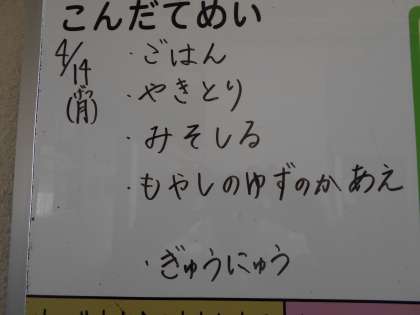 こんだてめい
4/14
・ごはん
・やきとり
・みそしる
・もやしのゆずのかあえ
・ぎゅうにゅう